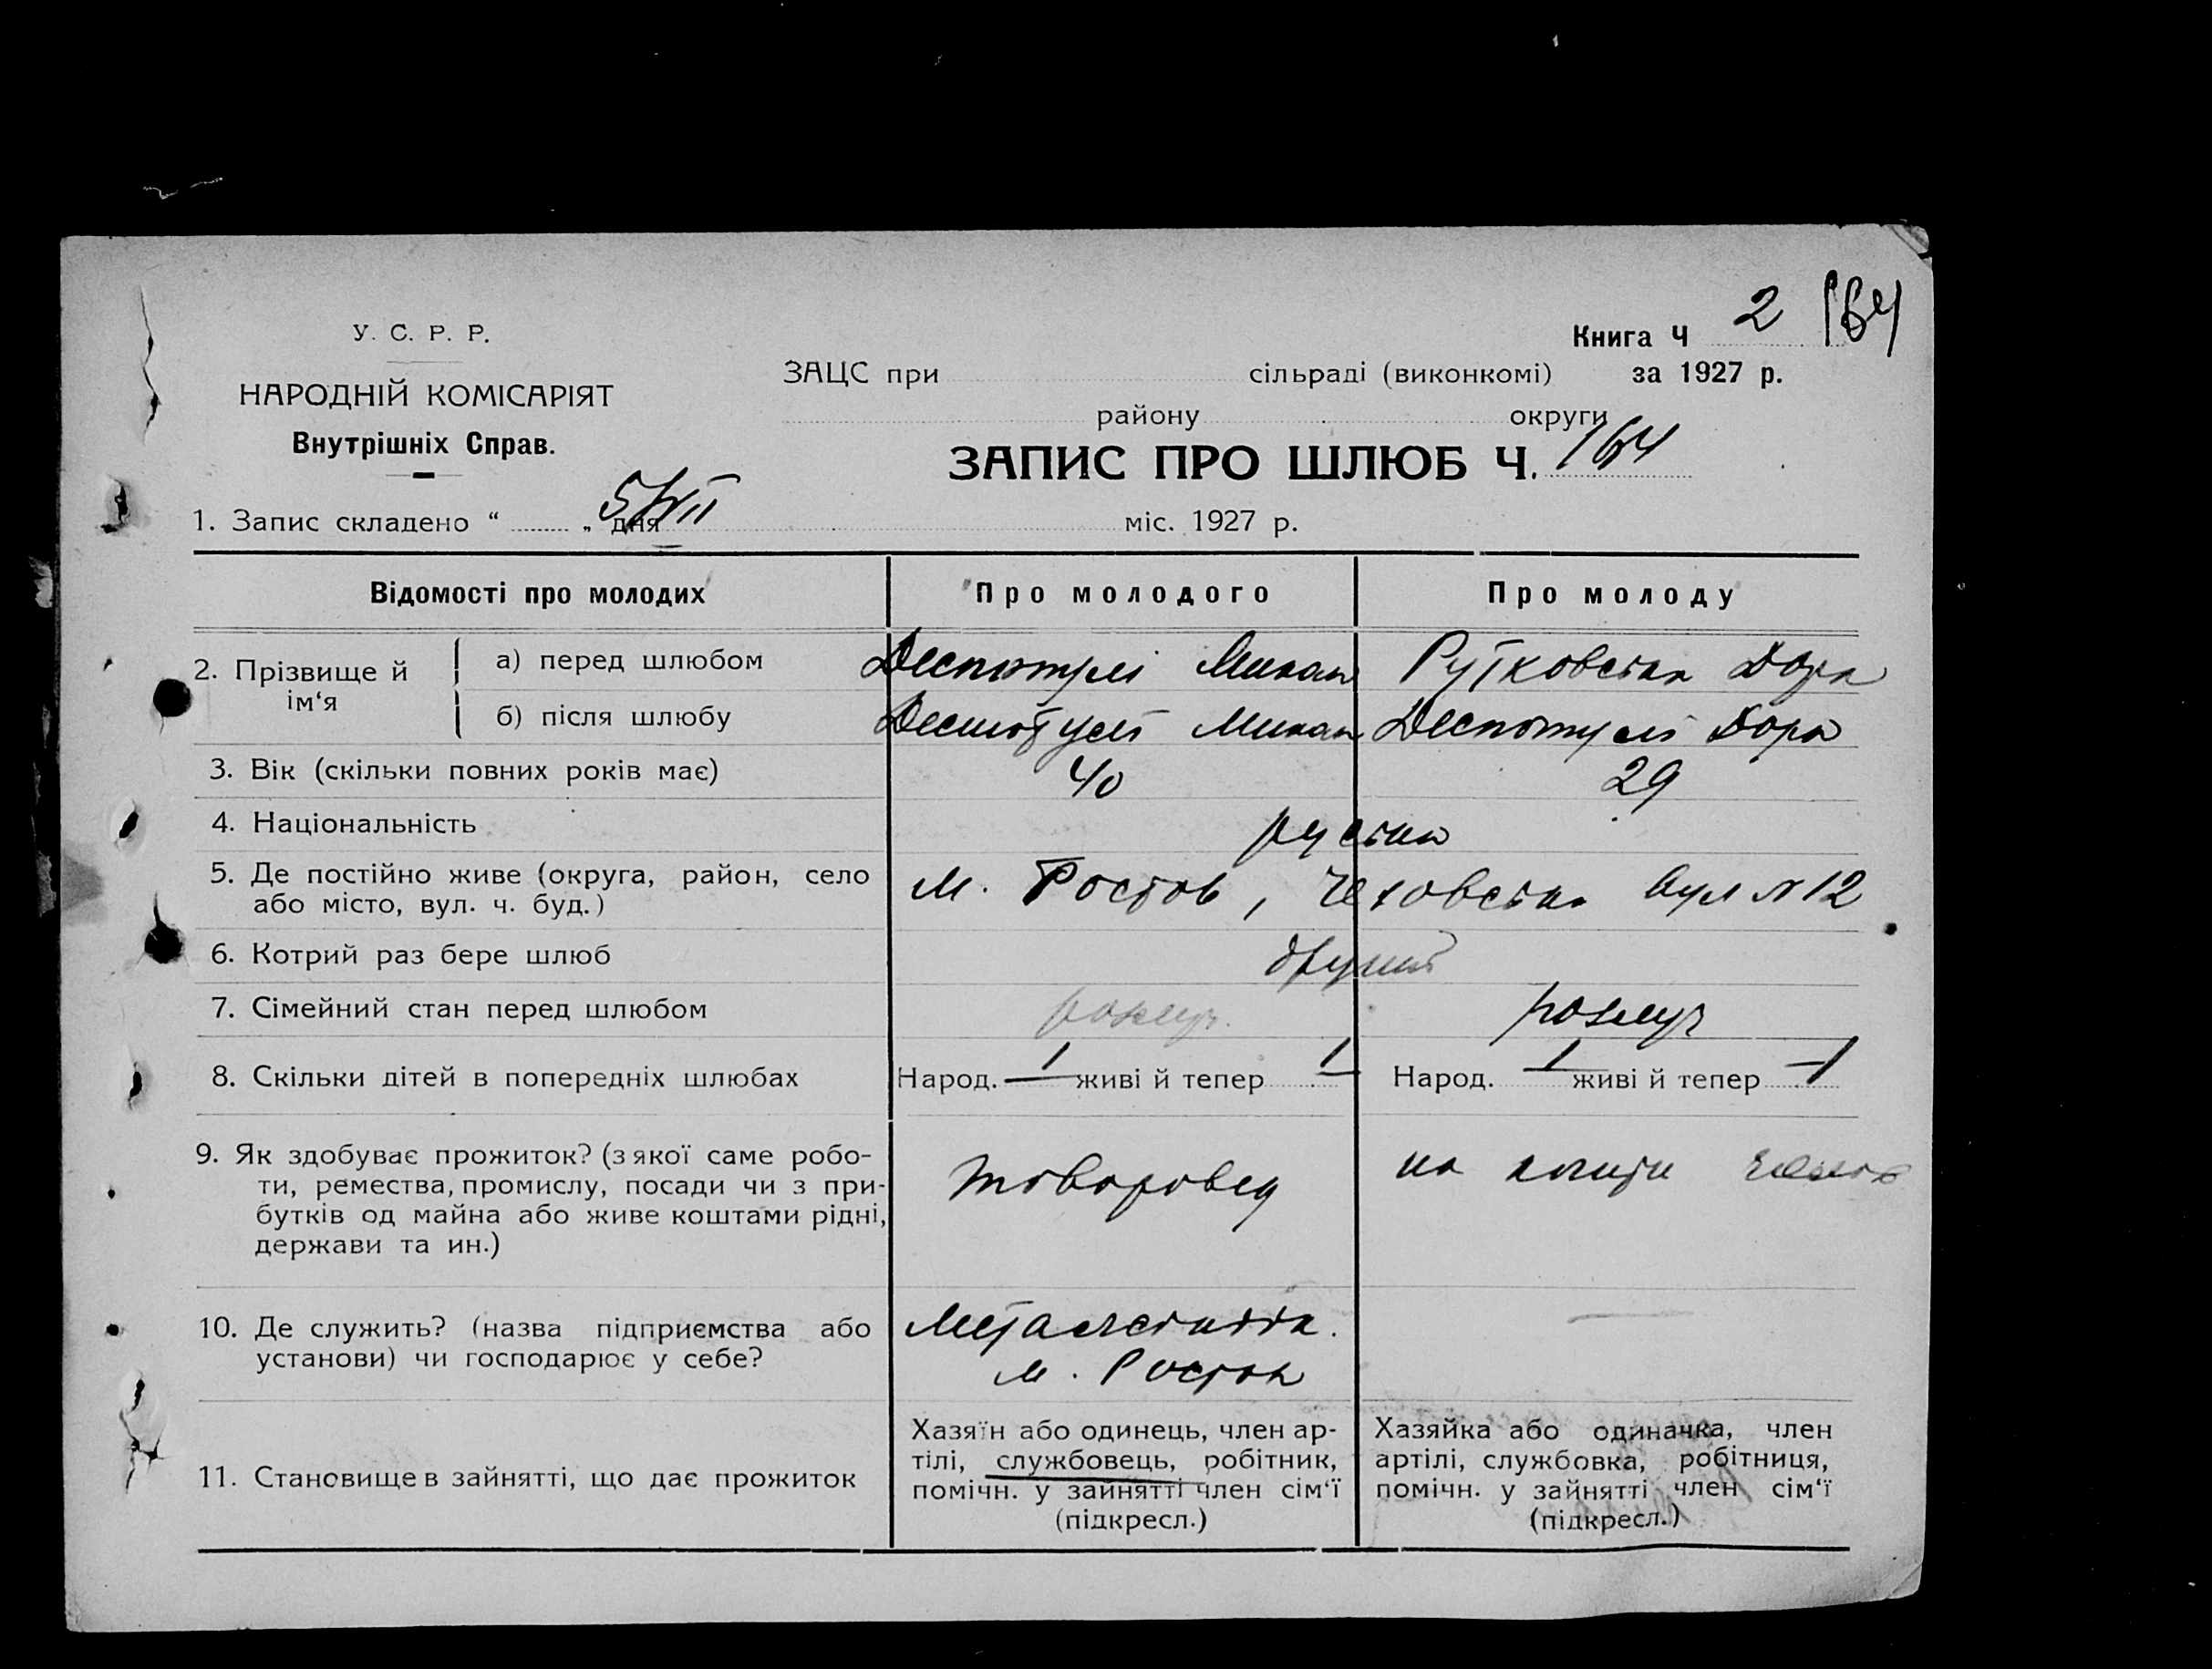 У. С. Р. Р.
НАРОДНІЙ КОМІСАРІЯТ
Внутрішніх Справ.
Книга Ч 2 164
ЗАЦС при сільраді (виконкомі) за 1927 р.
району округи
ЗАПИС ПРО ШЛЮБ Ч. 164
1. Запис складено “ „ дня 5/VII міс. 1927 р.
Відомості про молодих Про молодого Про молоду
2. Прізвище й ім‘я
а) перед шлюбом Деспотулі Михай Рутковська Дора
б) після шлюбу Деспотулі Михай Деспотулі Дора
3. Вік (скільки повних років має) 40 29
4. Національність руська
5. Де постійно живе (округа, район, село
або місто, вул. ч. буд.)
м. Ростов, Чеховська вул № 12
6. Котрий раз бере шлюб другий
7. Сімейний стан перед шлюбом розлуч. розлуч
8. Скільки дітей в попередніх шлюбах Народ. 1 живі й тепер 1 Народ. 1 живі й тепер 1
9. Як здобуває прожиток? (з якої саме робо-
ти, ремества, промислу, посади чи з при-
бутків од майна або живе коштами рідні,
держави та ин.)
товаровед
на кошти
10. Де служить? (назва підприємства або
установи) чи господарює у себе?
м. Ростов
11. Становище в зайнятті, що дає прожиток
Хазяїн або одинець, член ар-
тілі, службовець, робітник,
помічн. у зайнятті член сім‘ї
(підкресл.)
Хазяйка або одиначка, член
артілі, службовка, робітниця,
помічн. у зайнятті член сім‘ї
(підкресл.)